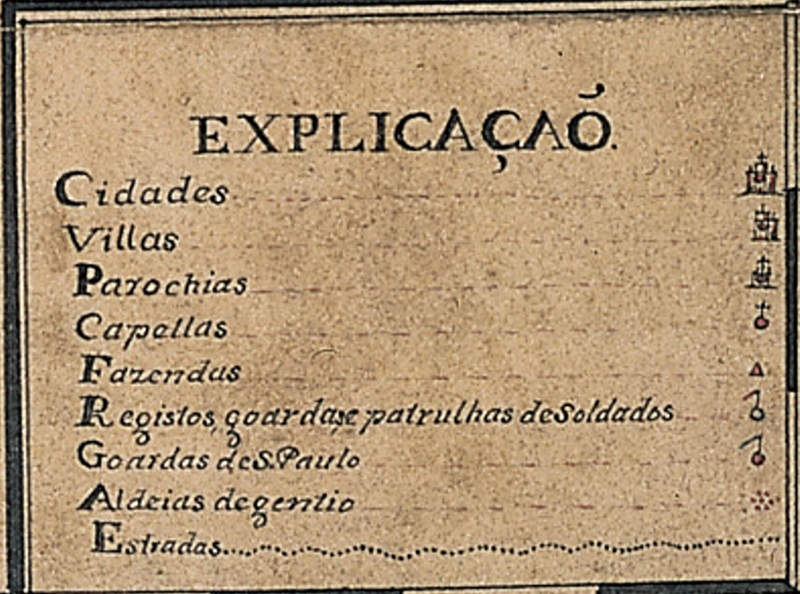 EXPLICAÇAÕ.
Cidades
Villas
Parochias
Capellas
Fazendas
Registos, goardas, e patrulhas de Soldados
Goardas de S. Paulo
Aldeias de gentio
Estradas